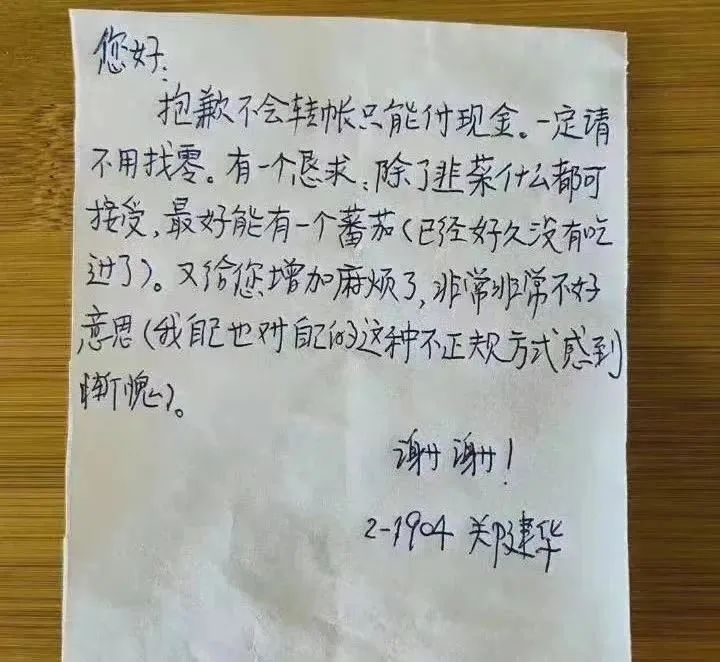 您好:
抱歉不会转帐只能付现金。一定请
不用找零。有一个恳求:除了韭菜什么都可
接受,最好能有一个蕃茄(已经好久没有吃
过了)。又给您增加麻烦了,非常非常不好
意思(我自己也对自己的这种不正规方式感到
惭愧)。
谢谢!
2-1904 郑建华